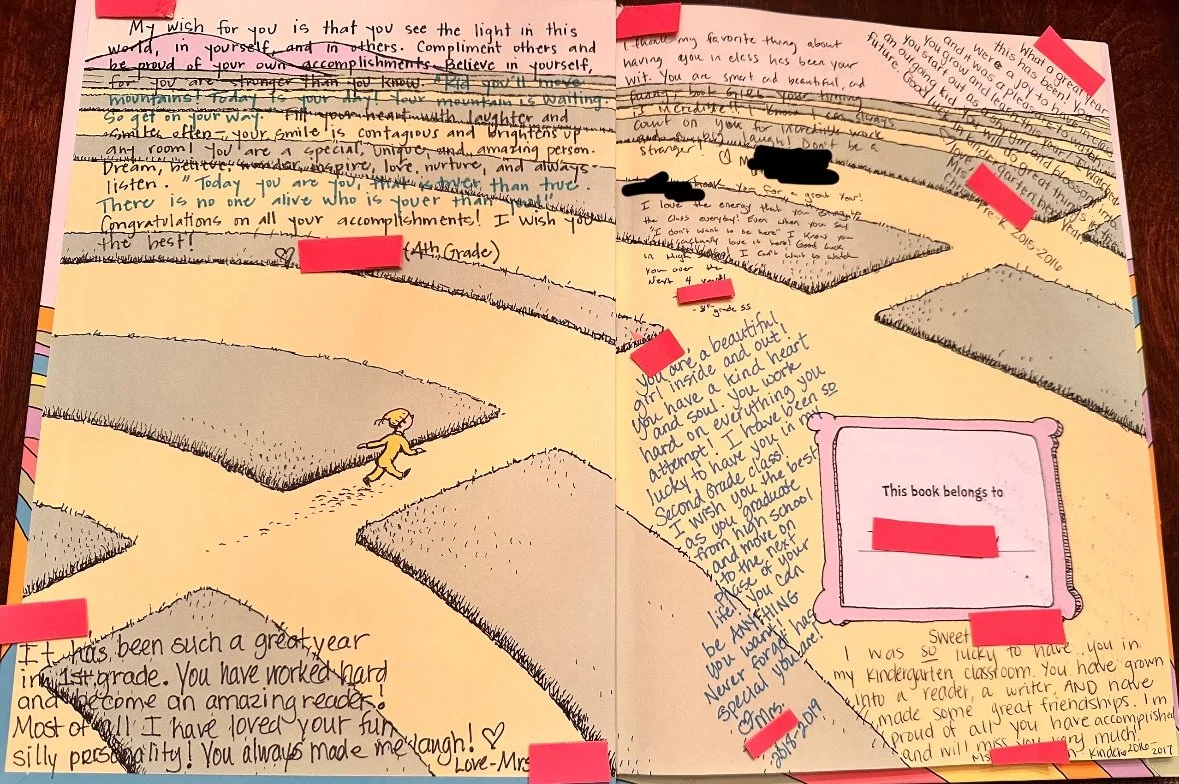 My wish for you is that you see the light in this
world, in yourself, and in others. Compliment others and
be proud of your own accomplishments. Believe in yourself,
for you are stronger than you know. "Kid you'll move
mountains! Today is your day! Your mountain is waiting
So get on your way. Fill your heart with laughter and
smile often — your smile is contagious and brightens up
any room! You are a special, unique, and amazing person.
Dream, believe, wonder, inspire, love, nurture, and always
listen. "Today you are you, that is truer than true.
There is no one alive who is youer than you!"
Congratulations on all your accomplishments! I wish you
the best!
♡ (4th Grade)
It has been such a great year
in 1st grade. You have worked hard
and become an amazing reader!
Most of all I have loved your fun
silly personality! You always made me laugh! ♡
Love-Mrs
I think my favorite thing about
having you in class has been your
wit. You are smart and beautiful, and
funny
is incredible! I know I can always
count on you for incredible work
and a big laugh! Don't be a
stranger! ♡ M
Thank you for a great year!
I love the energy that you
the class everyday! Even when you say
"I don't want to be here" I know you
actually love it here! Good luck
in High I can't wait to watch
you over the
next 4 years!
- 8th grade SS
What a great year
this has been! You
were a joy to have
and it was a pleasure to watch
you grow and learn this year!
You start out as a shy
an outgoing kid
future. Good luck in Kindergarten
Love,
Miss
Pre-K 2015-2016
You are a beautiful
girl inside and out!
You have a kind heart
and soul. You work
hard on everything you
attempt! I have been so
lucky to have you in my
Second Grade class!
I wish you the best
as you graduate
from high school
and move on
to the next
phase of your
life! You can
be ANYTHING
you want!
Never forget how
special you are!
Mrs.
2018-2019
This book belongs to
Sweet
I was so lucky to have you in
my kindergarten classroom. You have grown
into a reader, a writer, AND have
made some great friendships. I'm
proud of all you have accomplished
and will miss you very much!
Miss Kinder 2016-2017